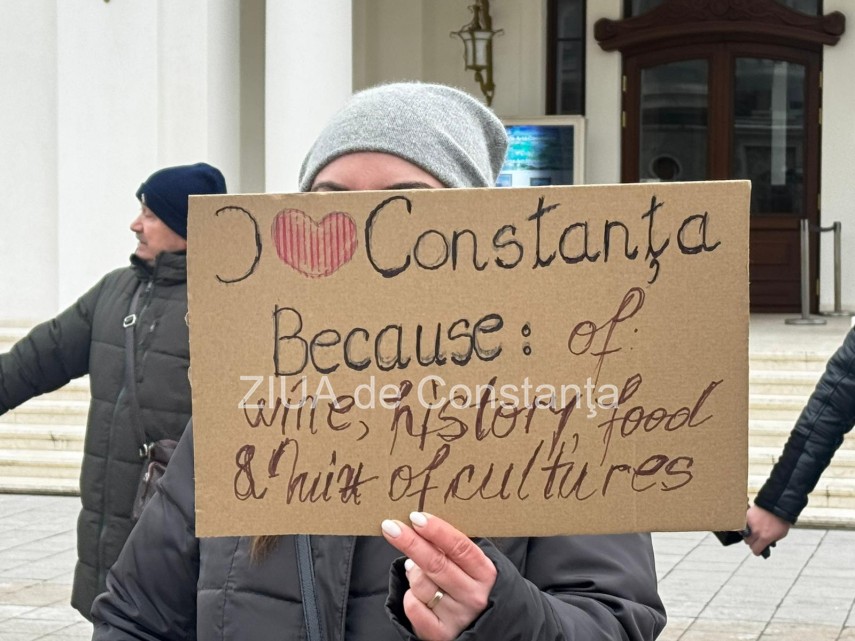 I ❤ Constanța
Because: of:
wine, history, food
& mix of cultures
ZIUA de Constanța